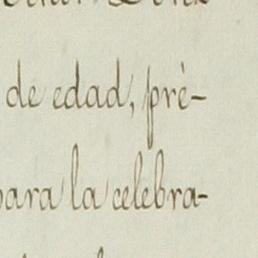 de edad, pré-
para la celebra-